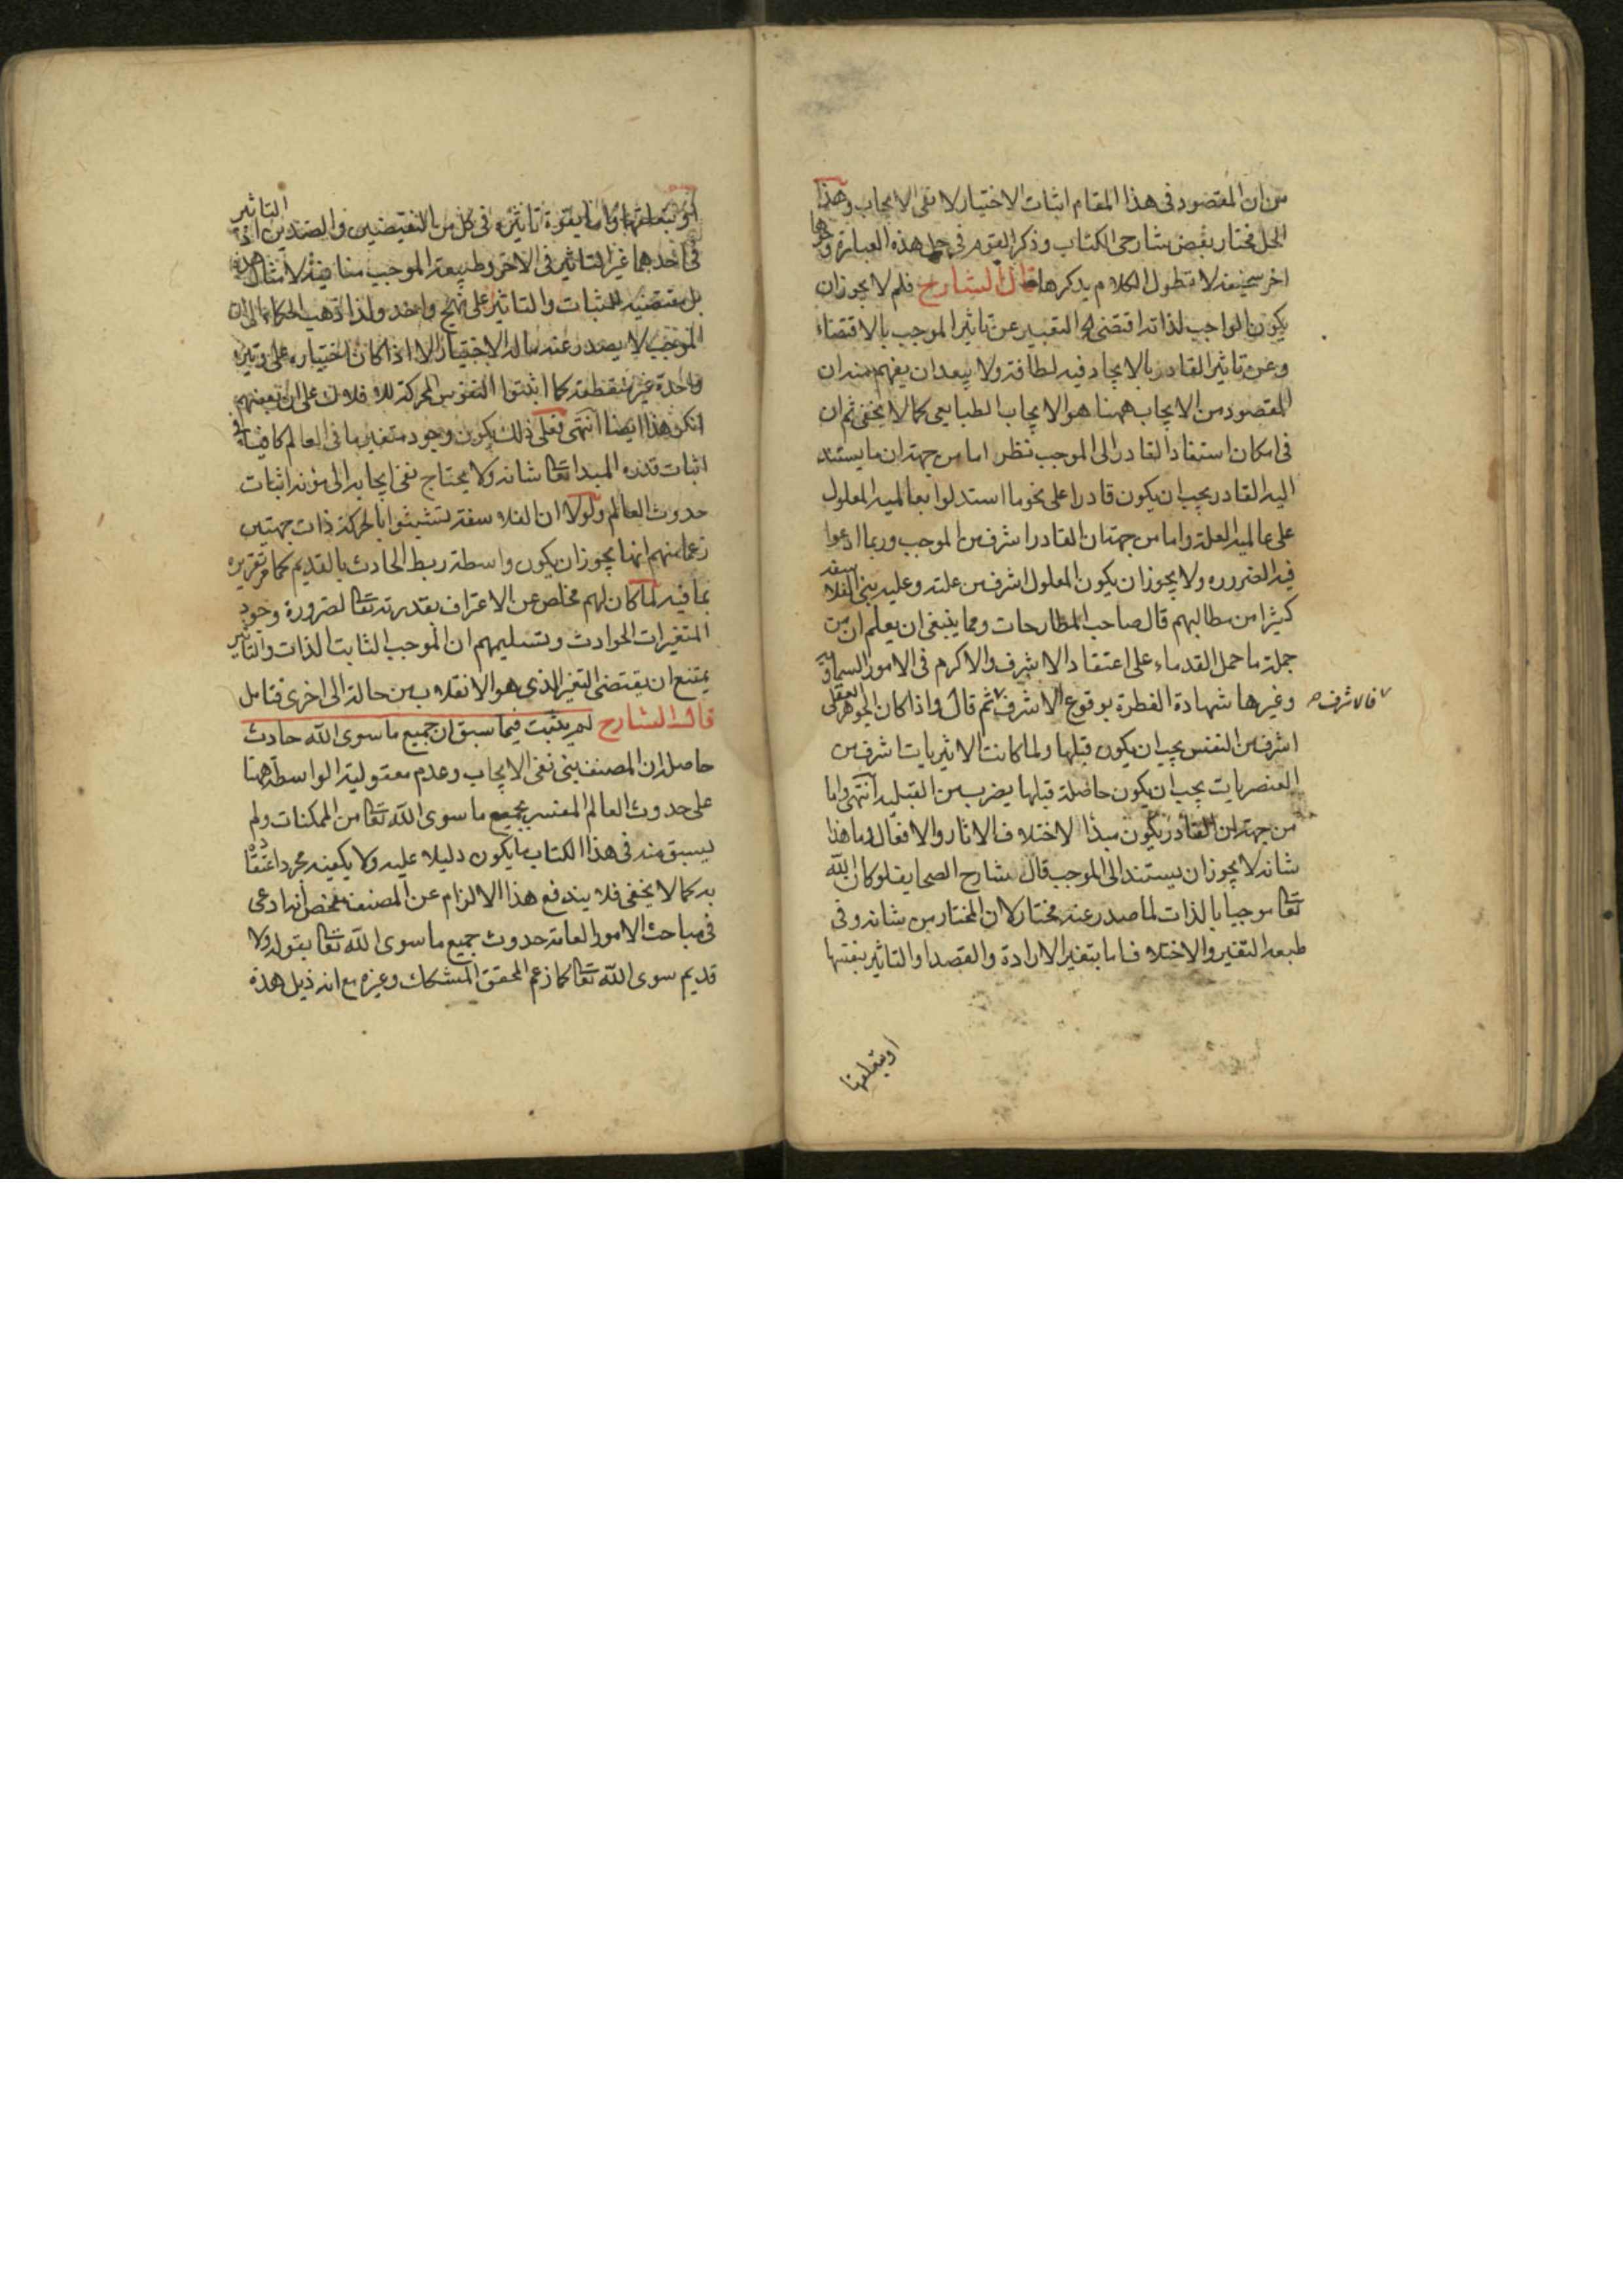 من ان المقصود فى هذا المقام اثبات الاختيار لا نفى الايجاب وهذا
الحل مختار بعض شارحى الكتاب وذكر القوم فى حل هذه العبارة وجوها
اخر سخيفة لا نطول الكلام بذكرها قال الشارح فلم لا يجوز ان
يكون الواجب لذاته اقتضى اه التعبير عن تاثير الموجب بالاقتضاء
وعن تاثير القادر بالايجاد فيه لطافة ولا يبعد ان يفهم منه ان
المقصود من الايجاب ههنا هو الايجاب الطبايعى كما لا يخفى ثم ان
فى امكان استناد القادر الى الموجب نظر اما من جهة ان ما يستند
اليه القادر يجب ان يكون قادرا على نحو ما استدلوا بعالمية المعلول
على عالمية العلة واما من جهة ان القادر اشرف من الموجب وربما ادعوا
فيه الضروره ولا يجوز ان يكون المعلول اشرف من علته وعليه بنى الفلاسفة
كثيرا من مطالبهم قال صاحب المطارحات ومما ينبغى ان يعلم ان من
جملة ما حمل القدماء على اعتقاد الاشرف والاكرم فى الامور السماوية
وغيرها شهادة الفطرة بوقوع الاشرف ثم قال واذا كان الجوهر العقلى
فالاشرف
اشرف من النفس يجب ان يكون قبلها ولما كانت الاثيريات اشرف من
العنصريات يجب ان يكون حاصلة قبلها بضرب من القبلية انتهى واما
من جهة ان القادر يكون مبدأ لاختلاف الاثار والافعال وما هذا
شانه لا يجوز ان يستند الى الموجب قال شارح الصحايف لو كان الله
تعا موجبا بالذات لما صدر عنه مختار لان المختار من شانه وفى
طبعه التغير والاختلاف اما بتغير الارادة والقصد او التاثير بنفسها
او بتعلقها
او بتعلقها واما بقوة تاثيره فى كل من النقيضين والضدين اذ التاثير
فى احدهما غير التاثير فى الاخر وطبيعة الموجب منافية لامثال هذه
بل مقتضية للثبات والتاثير على نهج واحد ولذا ذهب الحكماء الى ان
الموجب لا يصدر عنه ماله الاختيار الا اذا كان اختياره على وتيرة
واحدة غير منقطعة كما اثبتوا النفوس المحركة للافلاك على ان بعضهم
انكر هذا ايضا انتهى فعلى ذلك يكون وجود متغير ما فى العالم كافيا فى
اثبات قدرة المبدا تعا شانه ولا يحتاج نفى ايجابه الى مؤنة اثبات
حدوث العالم ولولا ان الفلاسفة تشبثوا بالحركة ذات جهتين
زعما منهم انها يجوز ان يكون واسطة ربط الحادث بالقديم كما مر تقريره
بما فيه لما كان لهم مخلص عن الاعتراف بقدرته تعا لضرورة وجود
المتغيرات الحوادث وتسليمهم ان الموجب الثابت الذات والتاثير
يمتنع ان يقتضى التغير الذى هو الانقلاب من حالة الى اخرى فتامل
قال الشارح لم يثبت فيما سبق ان جميع ما سوى الله حادث
حاصله ان المصنف بنى نفى الايجاب وعدم معقولية الواسطة ههنا
على حدوث العالم المفسر بجميع ما سوى الله تعا من الممكنات ولم
يسبق منه فى هذا الكتاب ما يكون دليلا عليه ولا يكفيه مجرد
به كما لا يخفى فلا يندفع هذا الالزام عن المصنف بمحض انه ادعى
فى مباحث الامور العامة حدوث جميع ما سوى الله تعا بقوله ولا
قديم سوى الله تعا كما زعم المحقق المشكك وغيره مع انه ذيل هذه